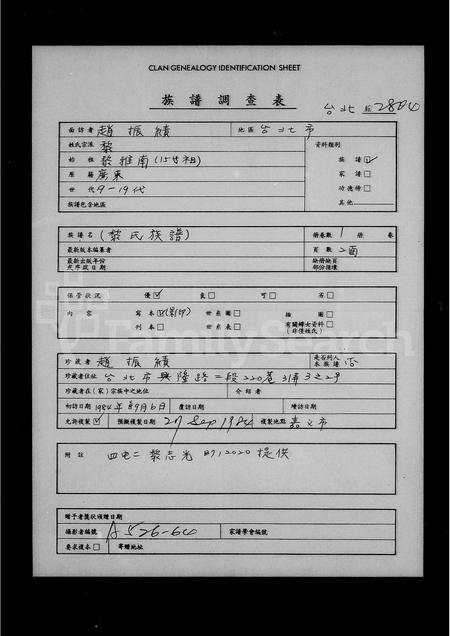 CLAN GENEALOGY IDENTIFICATION SHEET
族譜調查表
台北 2804
面訪者 趙振績 地區 台北市
姓氏宗派 黎 資料類別
始祖 黎雅南(15世祖) 族譜☑
原籍 廣東 家譜□
世代 9-19代 功德榜□
族譜包含地區 其他
族譜名 (黎氏族譜) 冊卷數 1 冊 卷
最新版本編纂者 頁數 二面
最新出版年份或年限日期 缺冊缺頁部份復壞
保管狀況 優☑ 良□ 可□ 劣□
內容 寫本☑(影印) 世系圖□ 插圖□
刊本□ 世系表□ 有關婦女資料□(非僅姓氏)
珍藏者 趙振績 是否列入本族譜 否
珍藏者住址 台北市興隆路二段220巷31弄3之2号
珍藏者在(家)宗族中之地位 介紹者
初訪日期 1984年8月6日 覆訪日期 續訪日期
允許複製☑ 預擬複製日期 27 Sep 1984 複製地點 嘉义市
附註 黎志光 提供
贈予者獎狀頒贈日期
攝影者編號 A526-64 家譜學會編號
要求複本□ 寄贈地址
FamilySearch